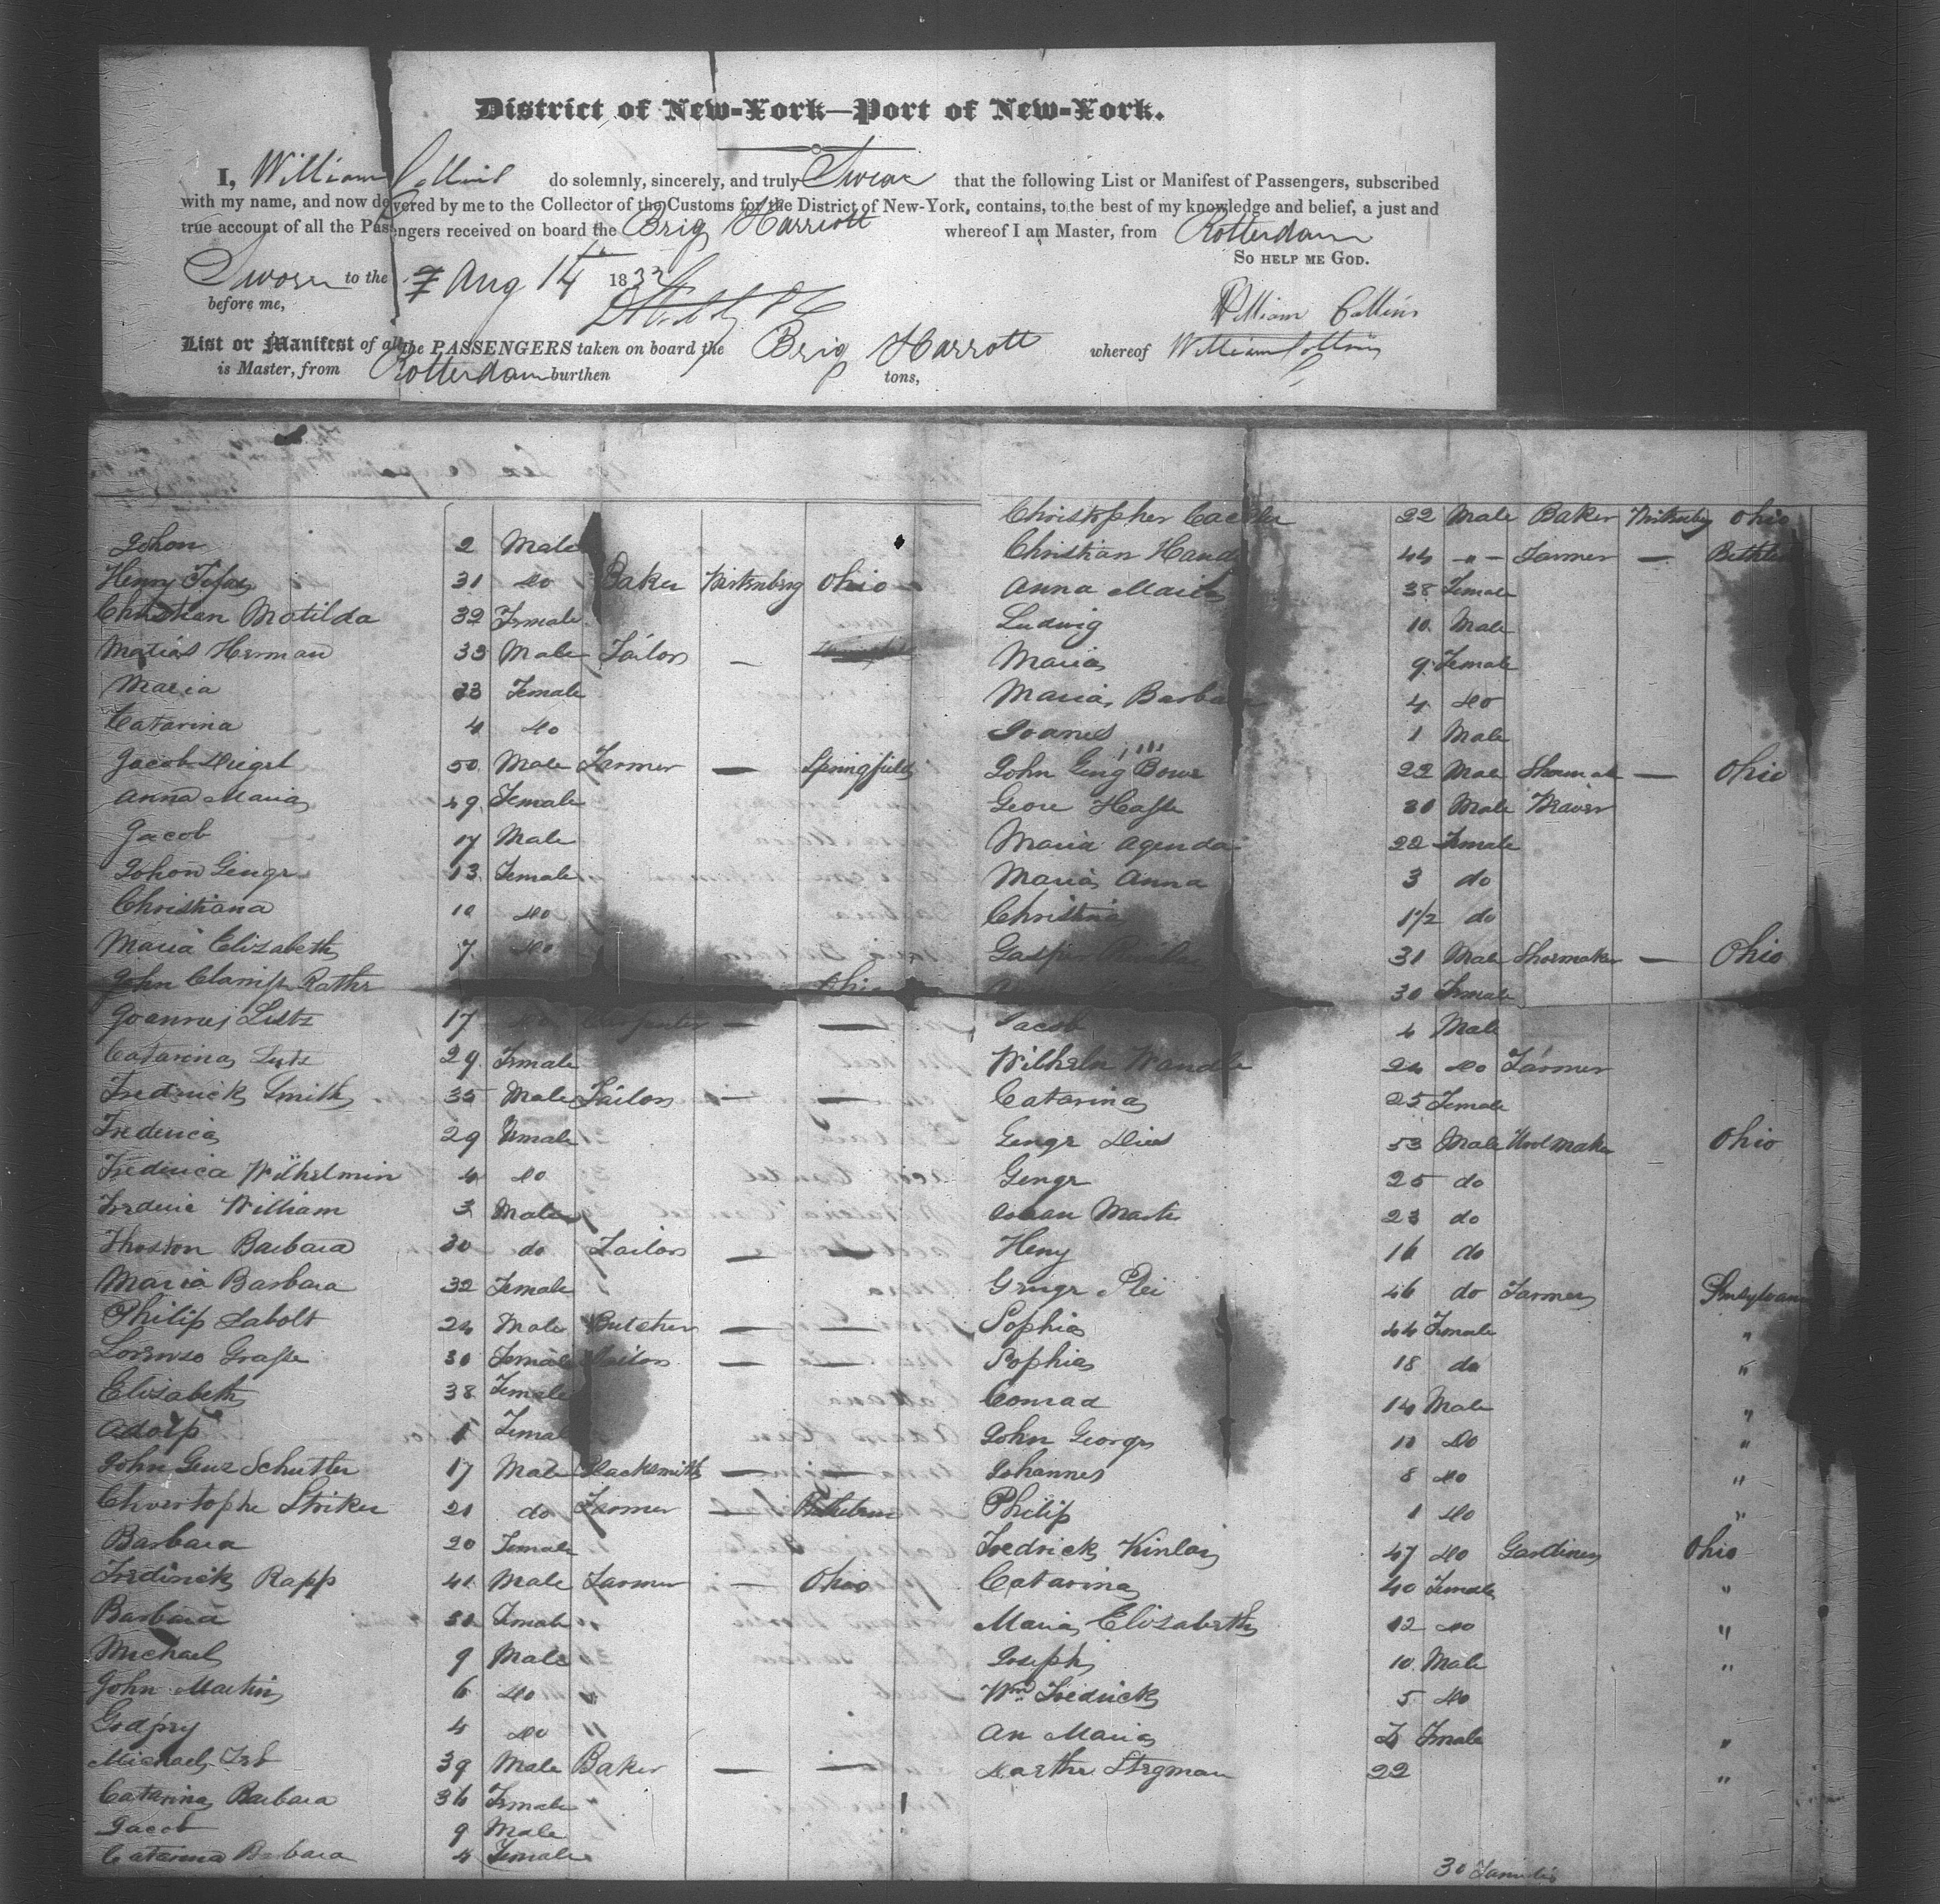 District of New-York—Port of New-York.
I, William Collins do solemnly, sincerely, and truly Swear that the following List or Manifest of Passengers, subscribed
with my name, and now delivered by me to the Collector of the Customs for the District of New-York, contains, to the best of my knowledge and belief, a just and
true account of all the Passengers received on board the Brig Harriott whereof I am Master, from Rotterdam
So HELP ME GOD.
Sworn to the Aug 14th 1832
before me,
William Collins
List or Manifest of all the PASSENGERS taken on board the Brig Harrott whereof William Collins
is Master, from Rotterdam burthen tons,
Johon 2 Male
Henry 31 do Baker Wirtenberg Ohio
Christian Matilda 32 Female
Matias Herman 33 Male Tailor —
Maria 23 Female
Catarina 4 do
Jacob 50 Male Farmer — Springfield
Anna Maria 49 Female
Jacob 17 Male
Johon Geugr 13 Female
Christiana 10 do
Maria Elizabeth 7 do
John Rather Ohio
Joannes Lutz 17 do Carpenter — —
Catarina Lutz 29 Female
Fredrick Smith 35 Male Tailor — —
Frederica 29 Female
Fredrica Wilhelmin 4 do
Fredric William 3 Male
Barbara 30 do Tailor — —
Maria Barbara 32 Female
Philip Labolt 24 Male Butcher — —
Lorenso Grasse 30 Female Tailor — —
Elizabeth 38 Female
Adolp 1 Female
John Schutter 17 Male Blacksmith — —
Christophe Striker 21 do Farmer —
Barbara 20 Female
Fredrick Rapp 41 Male Farmer — Ohio
Barbara Female "
Michael 9 Male
John Martin 6 do "
Godfry 4 do "
Michael 39 Male Baker — —
Catarina Barbara 36 Female
Jacob 9 Male
Catarina Barbara 4 Female
Christopher 22 Male Baker Wirtenberg Ohio
Christian 44 -"- Farmer —
Anna Maria 38 Female
Ludwig 10 Male
Maria 9 Female
Maria Barbara 4 do
Joanes 1 Male
John Geug Bowr 22 Male Shoemak — Ohio
Geore Hasse 30 Male Weaver
Maria Agenda 22 Female
Maria Anna 3 do
Christina 1 1/2 do
Gasper 31 Male Shoemaker — Ohio
30 Female
Jacob 4 Male
Wilheln Wandle 24 do Farmer
Catarina 25 Female
Geugr 53 Male Ohio
Geugr 25 do
23 do
Heny 16 do
46 do Farmer
Sophia 44 Female "
Sophia 18 do "
Conrad 14 Male "
John George 11 do "
Johannes 8 do "
Philip 1 do "
Fredrick Kinlai 47 do Gardiner Ohio
Catarina 40 Female "
Maria Elizabeth 12 do "
Joseph 10 Male "
Wm Fredrick 5 do
An Maria Female "
Stegman 22 "
30 Families